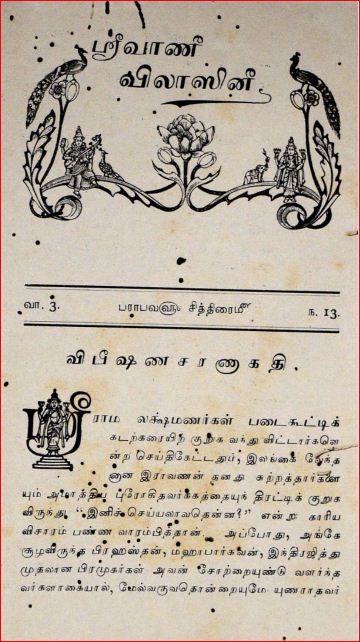 ஸ்ரீவாணீ
விலாஸினீ
வா. 3.
பராபவ௵ சித்திரை௴
ந. 13.
விபீஷணசரணாகதி.
ஸ்ரீராம லக்ஷ்மணர்கள் படைகூட்டிக்
கடற்கரையிற் குறுக வந்துவிட்டார்களெ
ன்ற செய்திகேட்டதும், இலங்கை வேந்த
னான இராவணன் தனது சுற்றத்தார்களை
யும் அமாத்திய புரோகிதவர்க்கத்தையுந் திரட்டிக் குறுக
விருந்து “இனிச் செய்யலாவதென்ன?” என்று காரிய
விசாரம் பண்ண வாரம்பித்தான். அப்போது, அங்கே
சூழவிருந்த பிரஹஸ்தன், மஹாபார்சுவன், இந்திரஜித்து
முதலான பிரமுகர்கள் அவன் சோற்றையுண்டு வளர்ந்த
வர்களாகையால், மேல்வருவதொன்றையுமே யுணராதவர்